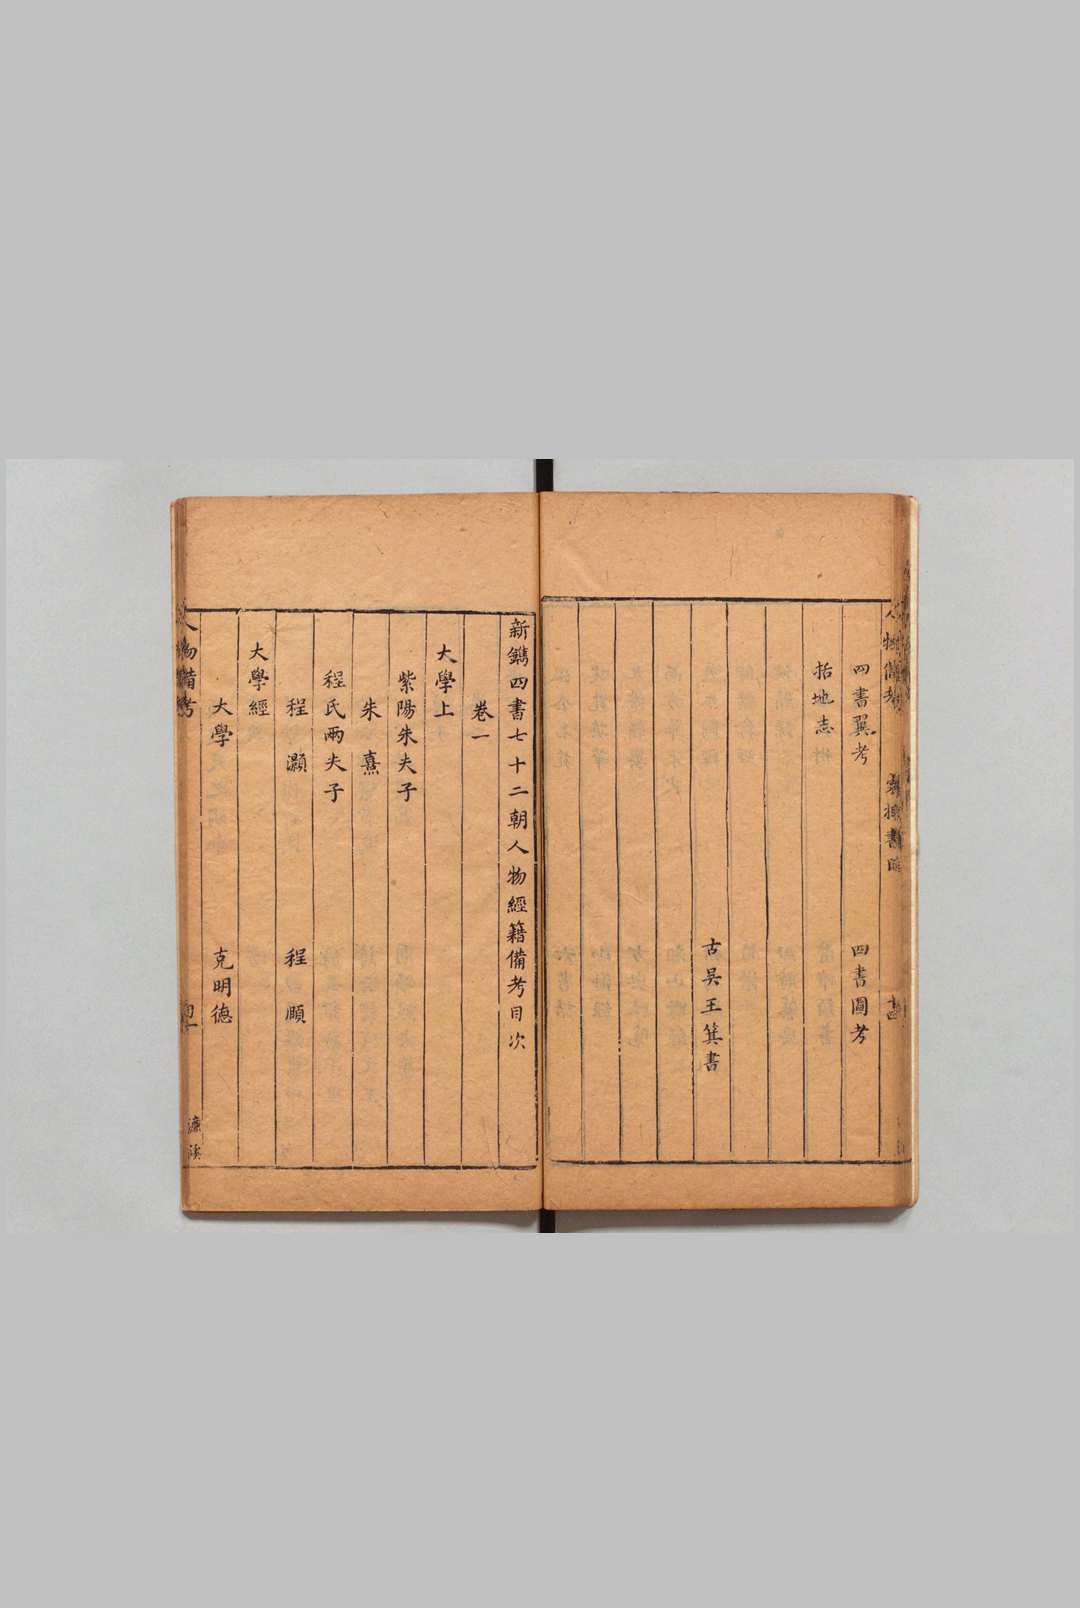 四書翼考 四書圖考
括地志
古吳王箕書
新鐫四書七十二朝人物經籍備考目次
卷一
大學上
紫陽朱夫子
朱熹
程氏兩夫子
程灝 程頤
大學經
大學 克明德
人物備考